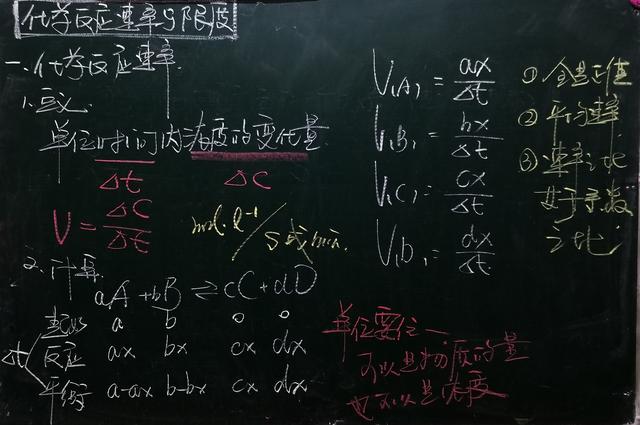 化学反应速率与限度
一、化学反应速率
1、定义
单位时间内浓度的变化量
Δt ΔC
V = ΔC/Δt mol·l⁻¹/s或min
2、计算
aA + bB ⇌ cC + dD
起始 a b 0 0
Δt 反应 ax bx cx dx
平衡 a-ax b-bx cx dx
V(A) = ax/Δt
V(B) = bx/Δt
V(C) = cx/Δt
V(D) = dx/Δt
① 全是正值
② 平均速率
③ 速率之比
等于系数
之比
单位要统一
可以是物质的量
也可以是浓度